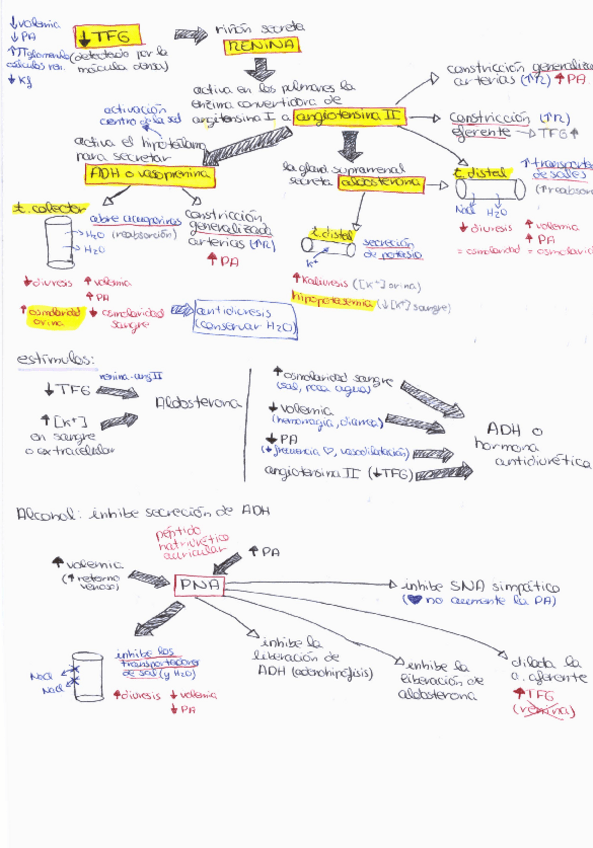 ↓volemia
↓PA
↑π glomerulo (detectado por la
↓Kf
mácula densa)
↓TFG
riñón secreta
RENINA
activa en los pulmones la
enzima convertidora de
angiotensina I a angiotensina II
constricción generalizada
arterias (↑R) ↑PA
constricción (↑R)
eferente → TFG↑
activación
centro de la sed
activa el hipotálamo
para secretar
ADH o vasopresina
la glánd suprarrenal
secreta aldosterona
t. distal
↑transporte
de sales
NaCl H2O
↓diuresis ↑volemia
↑PA
= osmolaridad = osmolaridad
t. colector
abre acuaporinas
(reabsorción)
H2O
H2O
constricción
generalizada
arterias (↑R)
↑PA
t. distal
K+
secreción
de potasio
↓diuresis ↑volemia
↑PA
↑osmolaridad
orina
↓osmolaridad
sangre
antidiuresis
(conservar H2O)
↑Kaliuresis ([K+] orina)
hipopotasemia (↓[K+] sangre)
estímulos:
↓TFG
renina-ang II
Aldosterona
↑[K+]
en sangre
o extracelular
↑osmolaridad sangre
(sal, poca agua)
↓volemia
(hemorragia, diarrea)
↓PA
(↓frecuencia ♡, vasodilatación)
angiotensina II (↓TFG)
ADH o
hormona
antidiurética
Alcohol: inhibe secreción de ADH
péptido
natriurético
auricular
↑volemia
(↑retorno
venoso)
↑PA
PNA
inhibe SNA simpático
(♥ no aumente la PA)
NaCl
NaCl
inhibe los
transportadores
de sal (y H2O)
↑diuresis ↓volemia
↓PA
inhibe la
liberación de
ADH (adenohipófisis)
inhibe la
liberación de
aldosterona
dilata la
a. aferente
↑TFG
(renina)